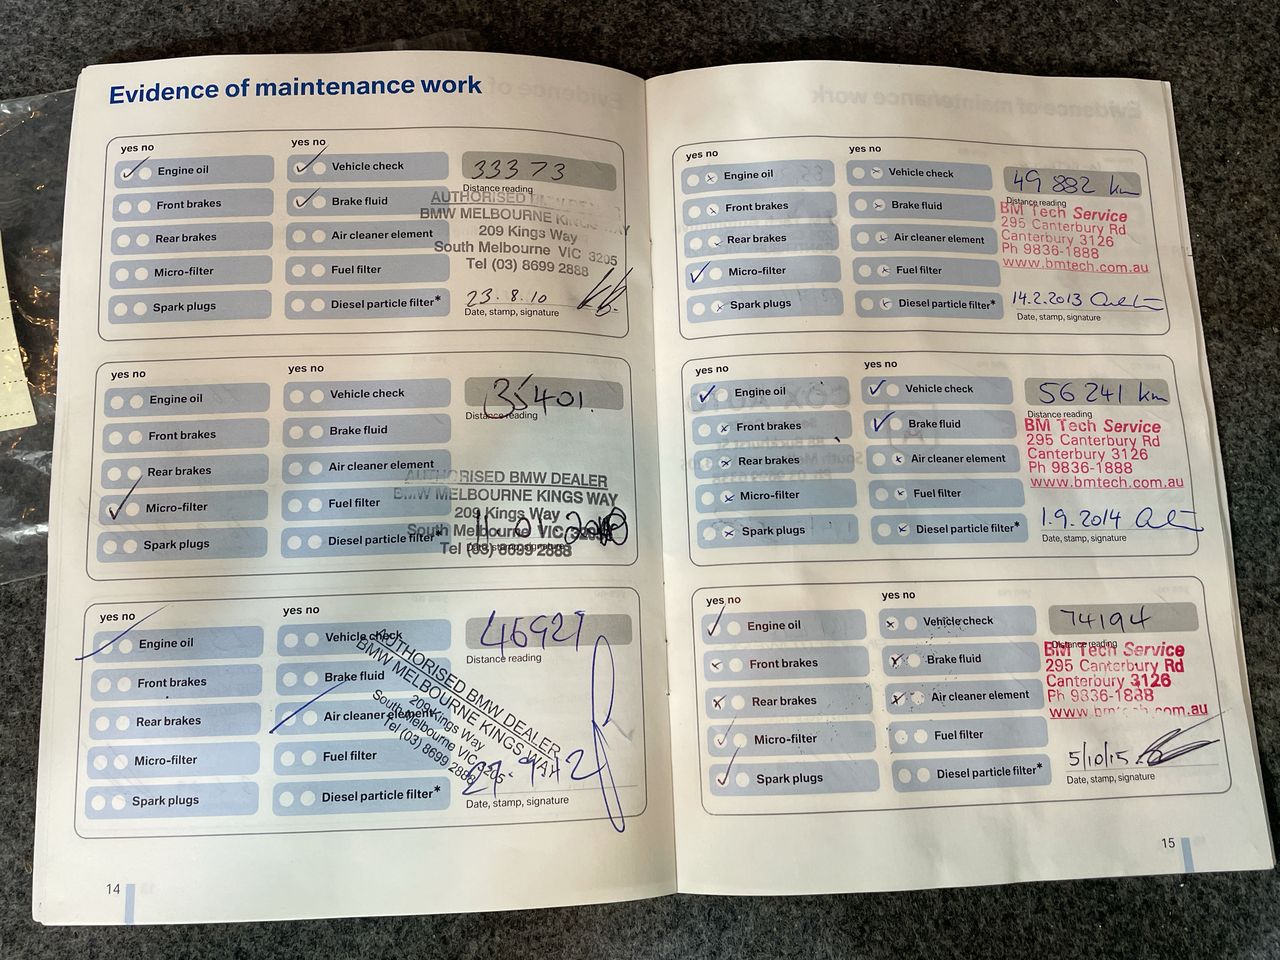 Evidence of maintenance work
yes no
yes no
Engine oil
Vehicle check
33373
Distance reading
Front brakes
Brake fluid
AUTHORISED BMW DEALER
BMW MELBOURNE KINGS WAY
209 Kings Way
South Melbourne VIC 3205
Tel (03) 8699 2888
Rear brakes
Air cleaner element
Micro-filter
Fuel filter
Spark plugs
Diesel particle filter*
23.8.10
Date, stamp, signature
yes no
yes no
Engine oil
Vehicle check
35401.
Distance reading
Front brakes
Brake fluid
Rear brakes
Air cleaner element
AUTHORISED BMW DEALER
BMW MELBOURNE KINGS WAY
209 Kings Way
South Melbourne VIC 3205
Tel (03) 8699 2888
Micro-filter
Fuel filter
Spark plugs
Diesel particle filter*
Date, stamp, signature
yes no
yes no
Engine oil
Vehicle check
46927
Distance reading
Front brakes
Brake fluid
AUTHORISED BMW DEALER
BMW MELBOURNE KINGS WAY
209 Kings Way
South Melbourne VIC 3205
Tel (03) 8699 2888
Rear brakes
Air cleaner element
Micro-filter
Fuel filter
Spark plugs
Diesel particle filter*
Date, stamp, signature
14
yes no
yes no
Engine oil
Vehicle check
49 882 km
Distance reading
Front brakes
Brake fluid
BM Tech Service
295 Canterbury Rd
Canterbury 3126
Ph 9836-1888
www.bmtech.com.au
Rear brakes
Air cleaner element
Micro-filter
Fuel filter
Spark plugs
Diesel particle filter*
14.2.2013
Date, stamp, signature
yes no
yes no
Engine oil
Vehicle check
56 241 km
Distance reading
Front brakes
Brake fluid
BM Tech Service
295 Canterbury Rd
Canterbury 3126
Ph 9836-1888
www.bmtech.com.au
Rear brakes
Air cleaner element
Micro-filter
Fuel filter
Spark plugs
Diesel particle filter*
1.9.2014
Date, stamp, signature
yes no
yes no
Engine oil
Vehicle check
74194
Distance reading
Front brakes
Brake fluid
BM Tech Service
295 Canterbury Rd
Canterbury 3126
Ph 9836-1888
www.bmtech.com.au
Rear brakes
Air cleaner element
Micro-filter
Fuel filter
Spark plugs
Diesel particle filter*
5/10/15
Date, stamp, signature
15